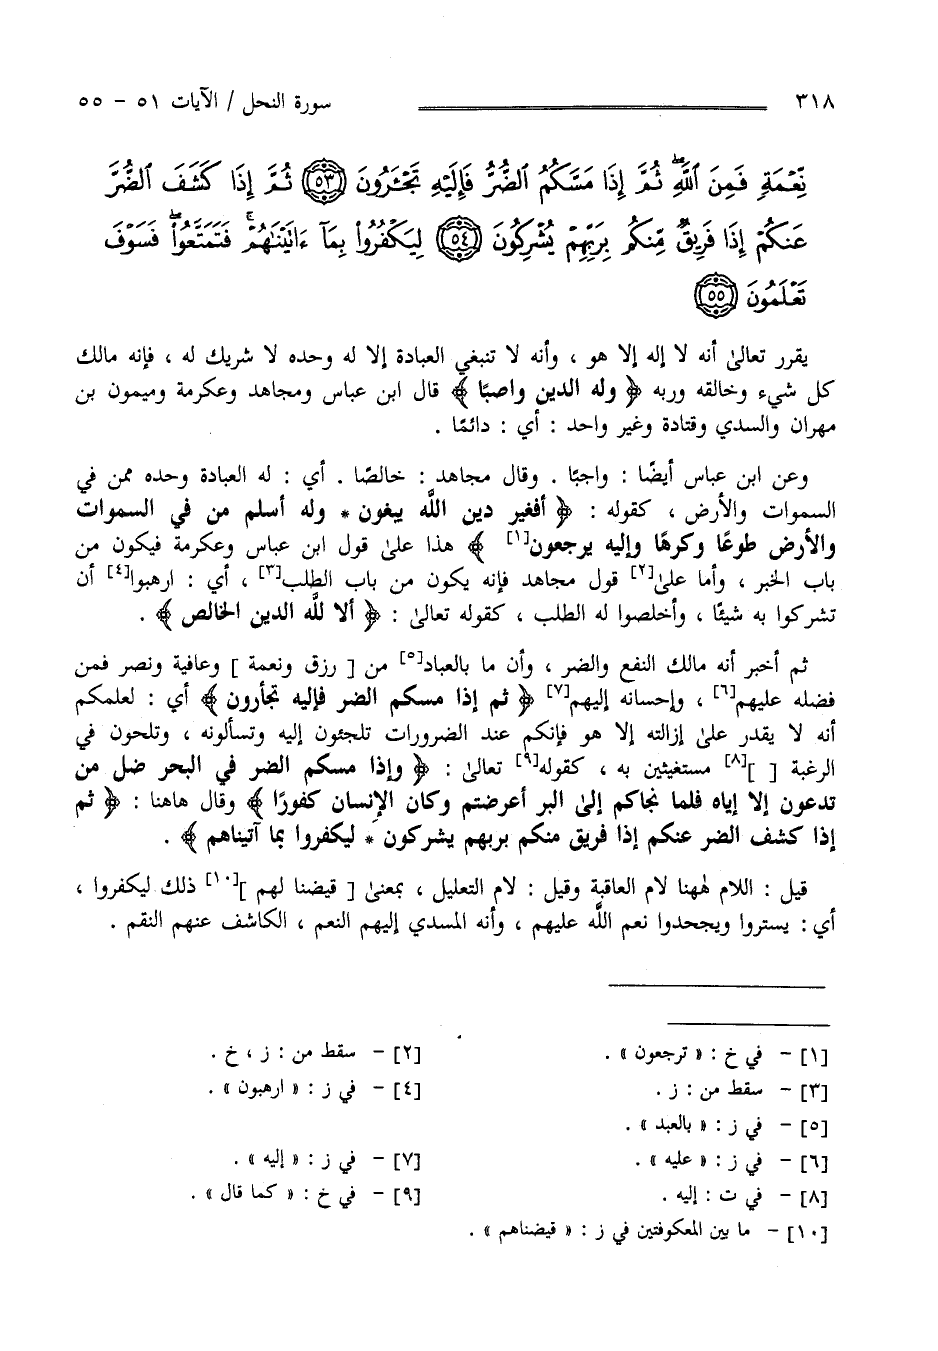 ٣١٨ سورة النحل / الآيات ٥١ - ٥٥
نِّعْمَةٍ فَمِنَ ٱللَّهِ ۖ ثُمَّ إِذَا مَسَّكُمُ ٱلضُّرُّ فَإِلَيْهِ تَجْـَٔرُونَ ﴿٥٣﴾ ثُمَّ إِذَا كَشَفَ ٱلضُّرَّ
عَنكُمْ إِذَا فَرِيقٌ مِّنكُم بِرَبِّهِمْ يُشْرِكُونَ ﴿٥٤﴾ لِيَكْفُرُوا۟ بِمَآ ءَاتَيْنَـٰهُمْ ۚ فَتَمَتَّعُوا۟ ۖ فَسَوْفَ
تَعْلَمُونَ ﴿٥٥﴾
يقرر تعالىٰ أنه لا إله إلا هو ، وأنه لا تنبغي العبادة إلا له وحده لا شريك له ، فإنه مالك
كل شيء وخالقه وربه ﴿ وله الدين واصبًا ﴾ قال ابن عباس ومجاهد وعكرمة وميمون بن
مهران والسدي وقتادة وغير واحد : أي : دائمًا .
وعن ابن عباس أيضًا : واجبًا . وقال مجاهد : خالصًا . أي : له العبادة وحده ممن في
السموات والأرض ، كقوله : ﴿ أفغير دين الله يبغون * وله أسلم من في السموات
والأرض طوعًا وكرهًا وإليه يرجعون[١] ﴾ هذا علىٰ قول ابن عباس وعكرمة فيكون من
باب الخبر ، وأما علىٰ[٢] قول مجاهد فإنه يكون من باب الطلب[٣] ، أي : ارهبوا[٤] أن
تشركوا به شيئًا ، وأخلصوا له الطلب ، كقوله تعالىٰ : ﴿ ألا للَّه الدين الخالص ﴾ .
ثم أخبر أنه مالك النفع والضر ، وأن ما بالعباد[٥] من [ رزق ونعمة ] وعافية ونصر فمن
فضله عليهم[٦] ، وإحسانه إليهم[٧] ﴿ ثم إذا مسكم الضر فإليه تجأرون ﴾ أي : لعلمكم
أنه لا يقدر علىٰ إزالته إلا هو فإنكم عند الضرورات تلجئون إليه وتسألونه ، وتلحون في
الرغبة [ ][٨] مستغيثين به ، كقوله[٩] تعالىٰ : ﴿ وإذا مسكم الضر في البحر ضل من
تدعون إلا إياه فلما نجاكم إلى البر أعرضتم وكان الإنسان كفورًا ﴾ وقال هاهنا : ﴿ ثم
إذا كشف الضر عنكم إذا فريق منكم بربهم يشركون * ليكفروا بما آتيناهم ﴾ .
قيل : اللام لههنا لام العاقبة وقيل : لام التعليل ، بمعنىٰ [ قيضنا لهم ][١٠] ذلك ليكفروا ،
أي : يستروا ويجحدوا نعم اللَّه عليهم ، وأنه المسدي إليهم النعم ، الكاشف عنهم النقم .
[١] - في خ : « ترجعون » . [٢] - سقط من : ز ، خ .
[٣] - سقط من : ز . [٤] - في ز : « ارهبون » .
[٥] - في ز : « بالعبد » .
[٦] - في ز : « عليه » . [٧] - في ز : « إليه » .
[٨] - في ت : إليه . [٩] - في خ : « كما قال » .
[١٠] - ما بين المعكوفتين في ز : « قيضناهم » .